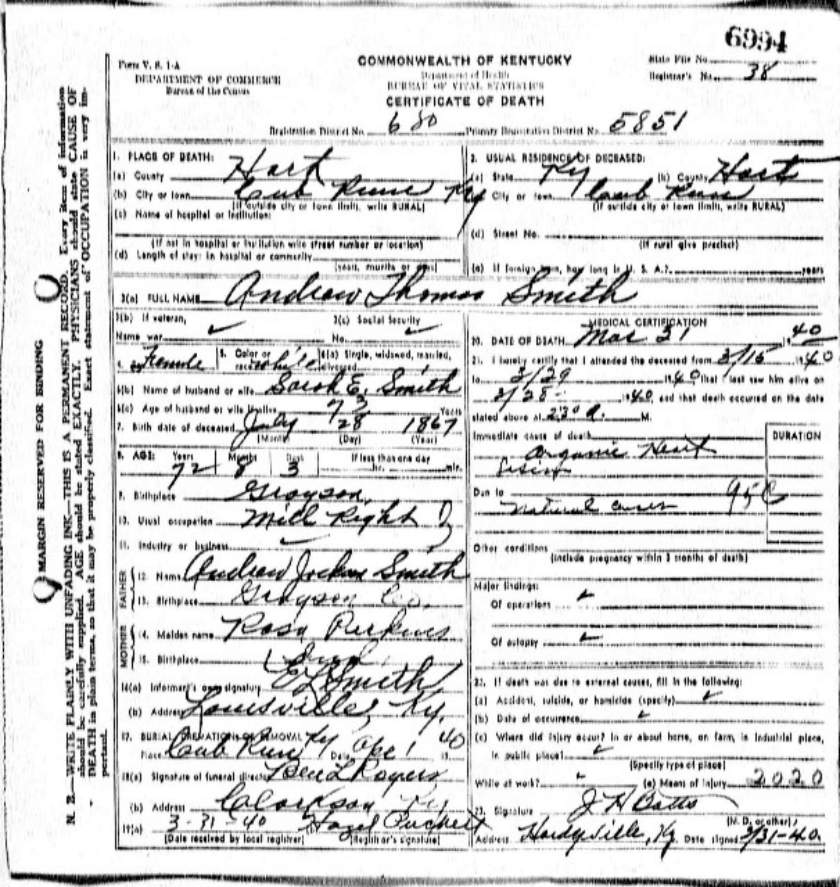 6994
Form V. S. 1-A
DEPARTMENT OF COMMERCE
Bureau of the Census
COMMONWEALTH OF KENTUCKY
Department of Health
BUREAU OF VITAL STATISTICS
CERTIFICATE OF DEATH
State File No.
Registrar's No. 38
Registration District No. 680 Primary Registration District No. 5851
MARGIN RESERVED FOR BINDING
N. B.—WRITE PLAINLY WITH UNFADING INK—THIS IS A PERMANENT RECORD. Every item of information
should be carefully supplied. AGE should be stated EXACTLY. PHYSICIANS should state CAUSE OF
DEATH in plain terms, so that it may be properly classified. Exact statement of OCCUPATION is very im-
portant.
1. PLACE OF DEATH:
(a) County Hart
(b) City or town Cub Run Ky
(If outside city or town limits, write RURAL)
(c) Name of hospital or institution:
(If not in hospital or institution write street number or location)
(d) Length of stay: in hospital or community
(years, months or days)
2. USUAL RESIDENCE OF DECEASED:
(a) State Ky (b) County Hart
City or town Cub Run
(If outside city or town limits, write RURAL)
(d) Street No.
(If rural give precinct)
(e) If foreign born, how long in U. S. A.? years
3(a) FULL NAME Andrew Thomas Smith
3(b) If veteran,
Name war
3(c) Social Security
No.
4. 5. Color or race white 6(a) Single, widowed, married, divorced
6(b) Name of husband or wife Sarah E. Smith
6(c) Age of husband or wife if alive 73 Years
7. Birth date of deceased July 28 1867
(Month) (Day) (Year)
8. AGE: Years Months Days If less than one day
72 8 3 hr. min.
9. Birthplace Grayson,
10. Usual occupation Mill Right
11. Industry or business
FATHER
12. Name Andrew Smith
13. Birthplace Grayson Co.
MOTHER
14. Maiden name Rosa Perkins
15. Birthplace
16(a) Informant's own signature E L Smith
(b) Address Louisville, Ky.
17. BURIAL, CREMATION OR REMOVAL
Place Cub Run Ky Date Apr 1 1940
18(a) Signature of funeral director Ben L Rogers
(b) Address Clarkson Ky
19(a) 3-31-40 Hazel Puckett
(Date received by local registrar) (Registrar's signature)
MEDICAL CERTIFICATION
20. DATE OF DEATH Mar 31 1940
21. I hereby certify that I attended the deceased from 3/15 1940
to 3/29 1940 that I last saw him alive on
3/28 1940, and that death occurred on the date
stated above at 230 A. M.
Immediate cause of death DURATION
organic Heart
lesion
Due to natural causes 95c
Other conditions
(Include pregnancy within 3 months of death)
Major findings:
Of operations
Of autopsy
22. If death was due to external causes, fill in the following:
(a) Accident, suicide, or homicide (specify)
(b) Date of occurrence
(c) Where did injury occur? In or about home, on farm, in industrial place,
in public place?
(Specify type of place)
While at work? (e) Means of injury 2020
23. Signature J H Botts
(M. D. or other)
Address Hardyville, Ky Date signed 3/31-40.